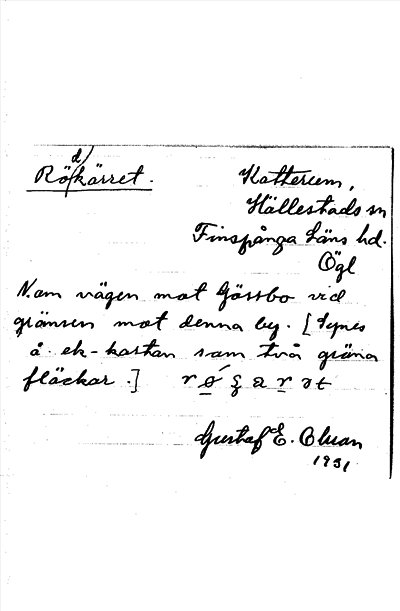 Rö(d)kärret.
Katterum,
Hällestads sn
Finspånga läns hd.
Ögl
N. om vägen mot Görsbo vid
gränsen mot denna by. [Synes
å ek-kartan som två gröna
fläckar.]
Gustaf E. Olsson
1931